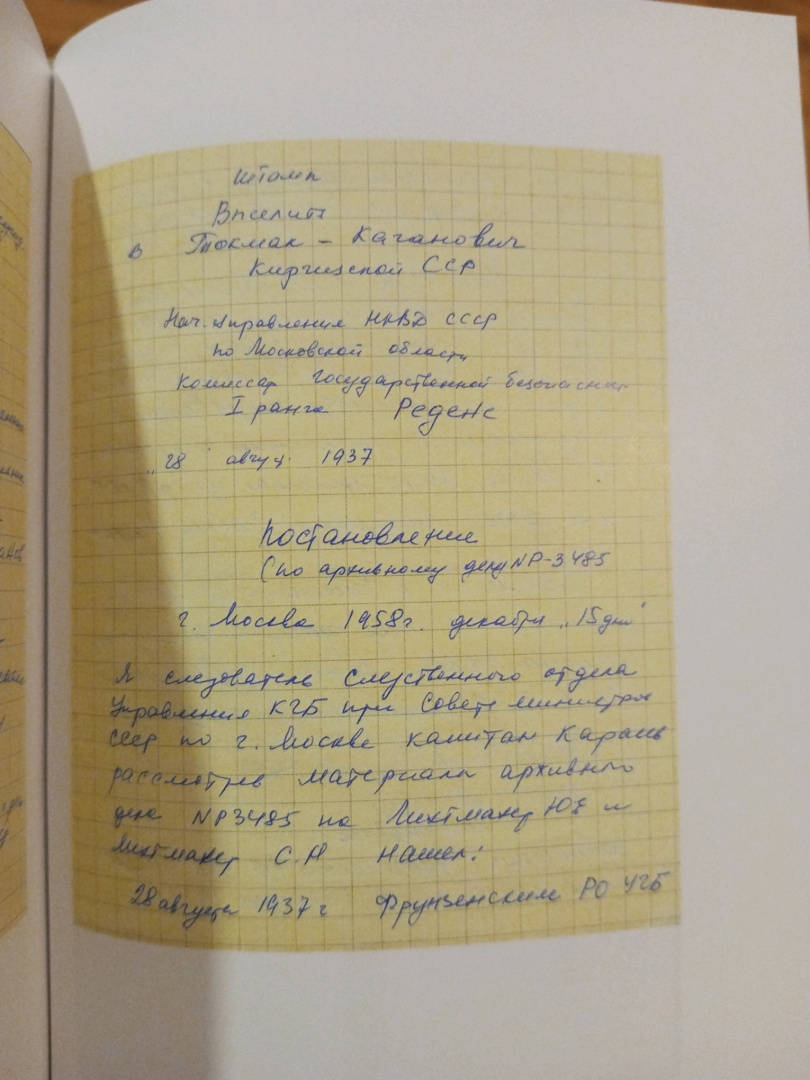 Штамп
Вписать
в Токмак - Каганович
Киргизской ССР
Нач. Управления НКВД СССР
по Московской области
Комиссар Государственной безопасности
I ранга Реденс
"28" август 1937
Постановление
(по архивному делу NР-3485
г. Москва 1958г. декабря "15 дня"
Я следователь Следственного отдела
Управления КГБ при Совете министров
СССР по г. Москве капитан
рассмотрев материалы архивного
дела NР3485 на Лихтмахер Ю и
Лихтмахер С.А нашел:
28 августа 1937 г Фрунзенским РО УГБ